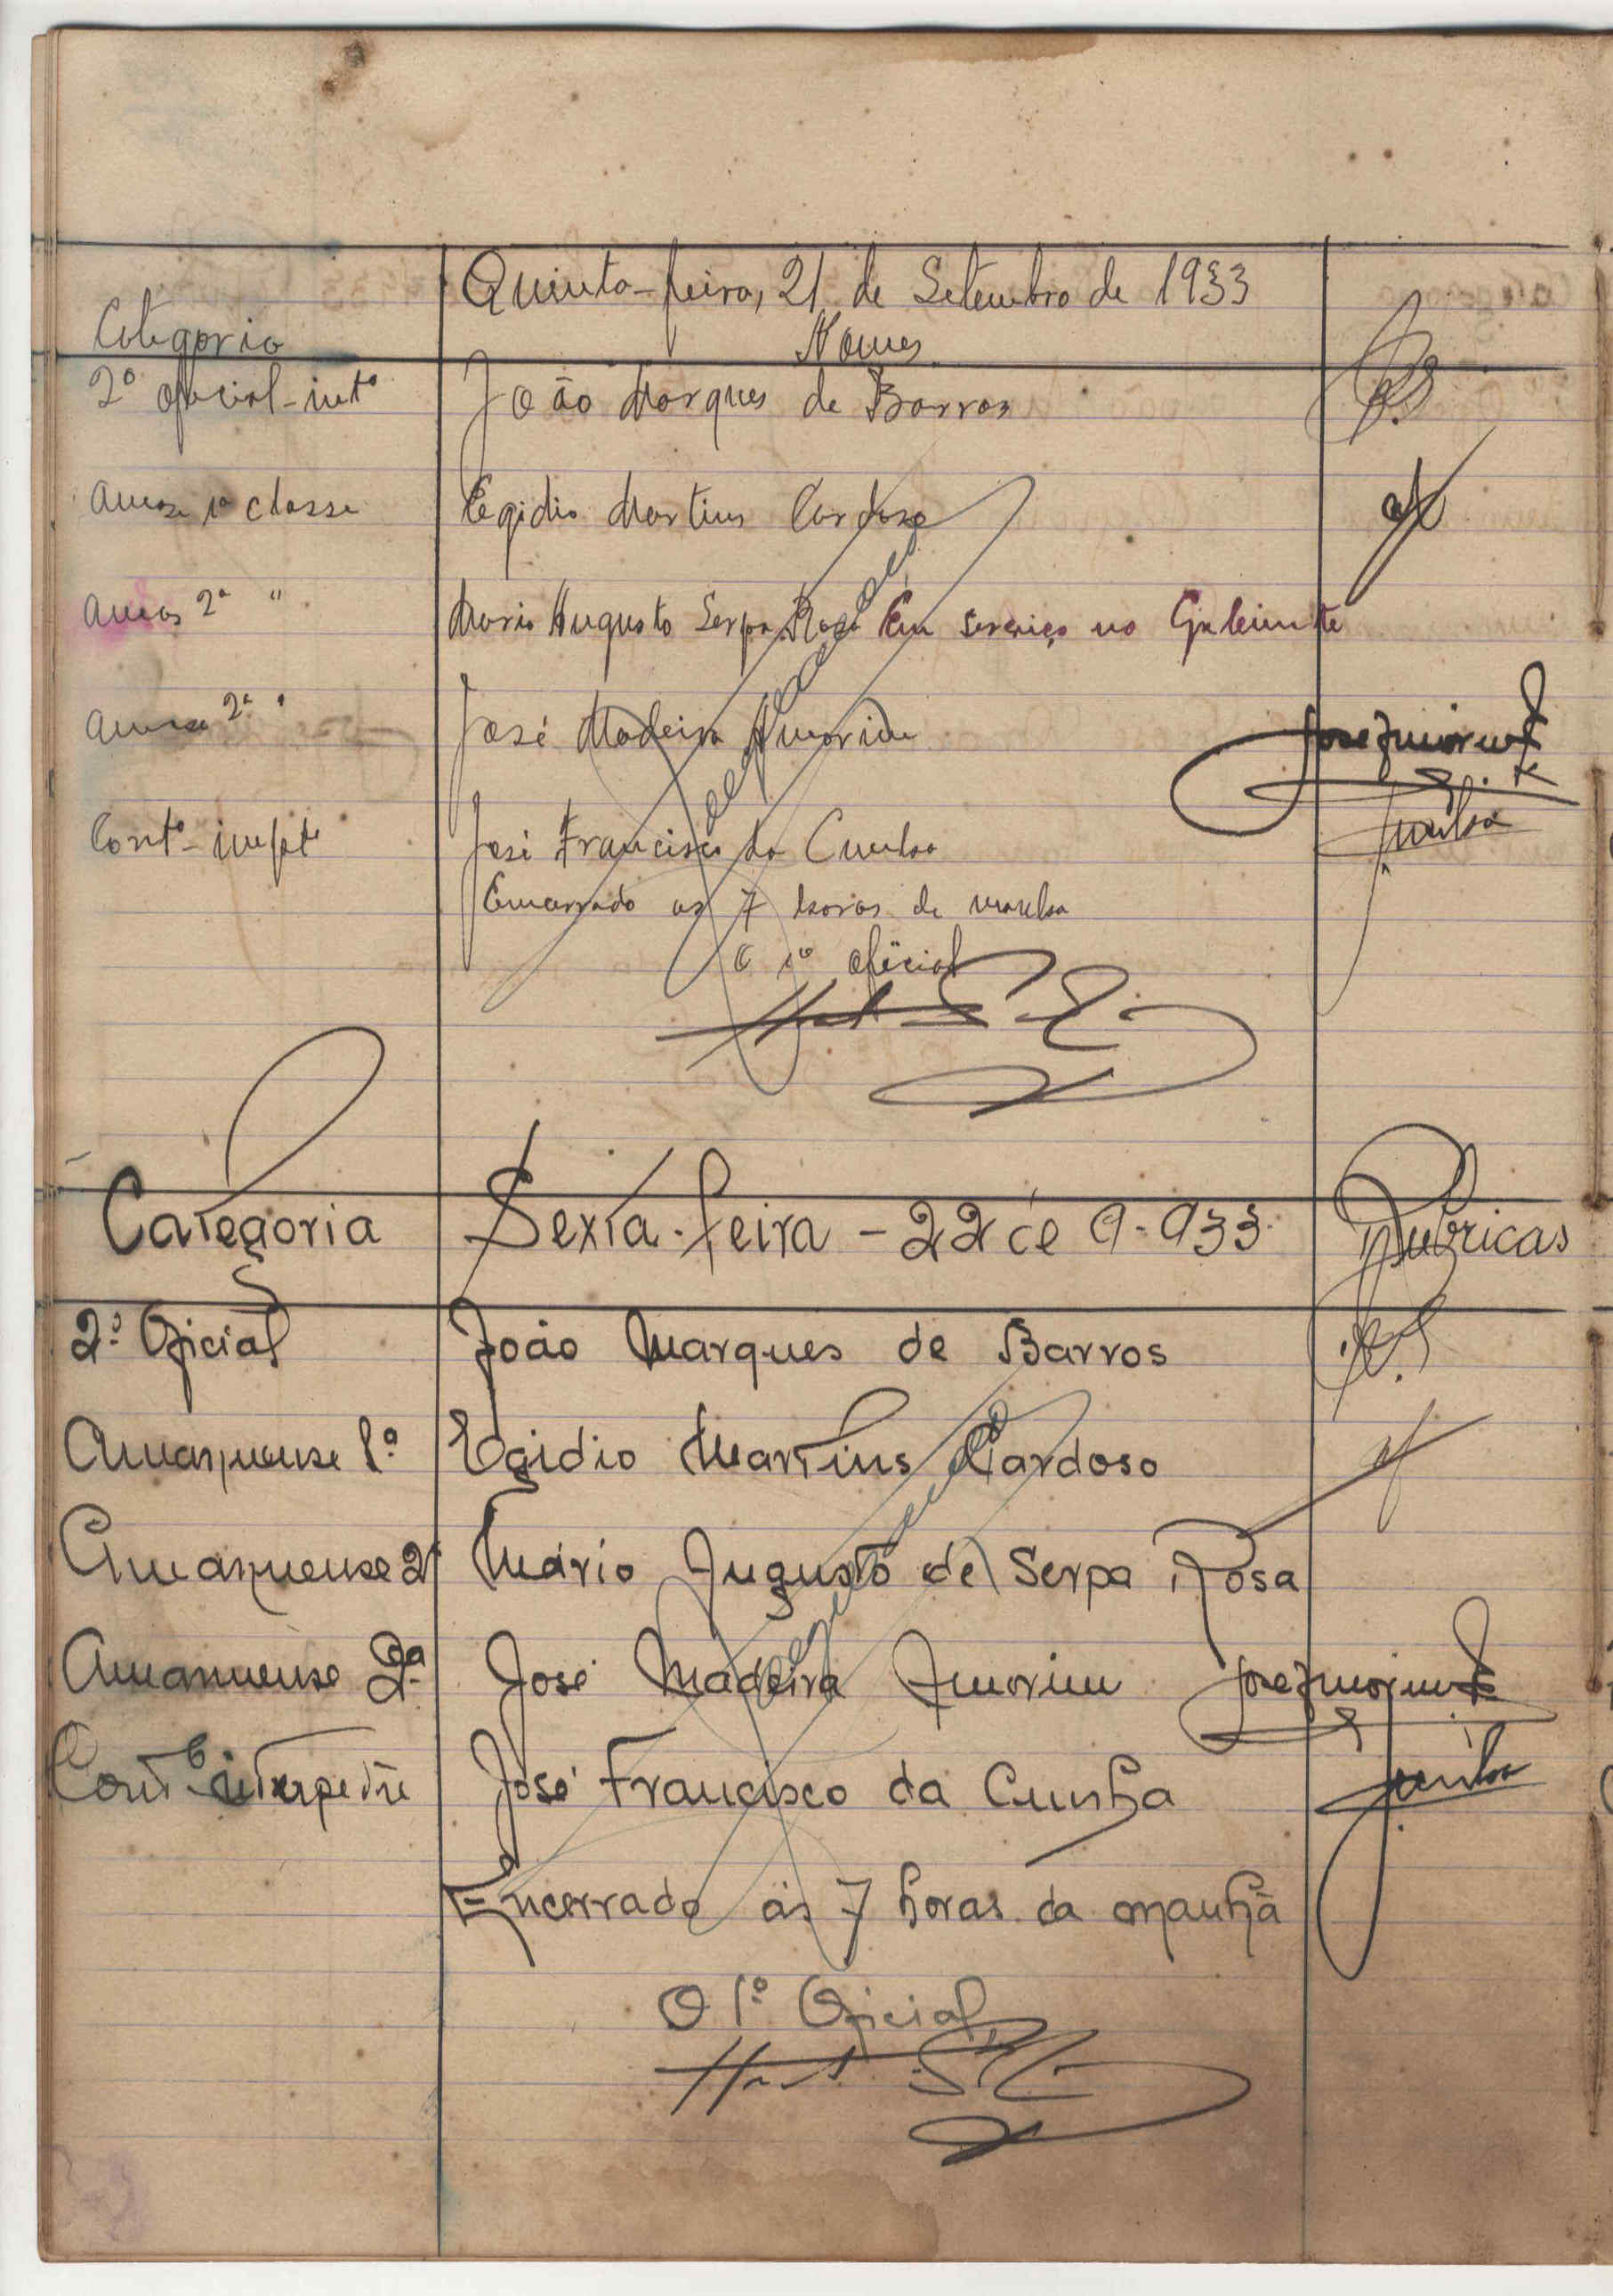 Quinta-feira, 21 de Setembro de 1933
Categoria Nomes
2º oficial-intº João Marques de Barros
1ª classe Egidio Martins Cardoso
2ª " Mario Augusto Serpa Rosa Em serviço no Gabinete
2ª " José Madeira Amorim José Amorim
José Francisco da Cunha Cunha
Encerrado as 7 horas da manha
O 1º oficial
Categoria Sexta-feira - 22 de 9-933 Rubricas
2º Oficial João Marques de Barros
Amanuense 1ª Egidio Martins Cardoso
Amanuense 2ª Mário Augusto de Serpa Rosa
Amanuense 2ª José Madeira Amorim José Amorim
José Francisco da Cunha Cunha
Encerrado ás 7 horas da manhã
O 1º Oficial